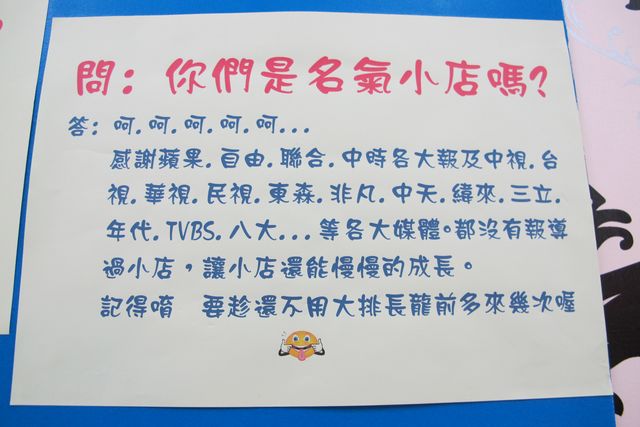 問：你們是名氣小店嗎?
答：呵.呵.呵.呵.呵...
感謝蘋果.自由.聯合.中時各大報及中視.台
視.華視.民視.東森.非凡.中天.緯來.三立.
年代.TVBS.八大...等各大媒體。都沒有報導
過小店，讓小店還能慢慢的成長。
記得唷 要趁還不用大排長龍前多來幾次喔